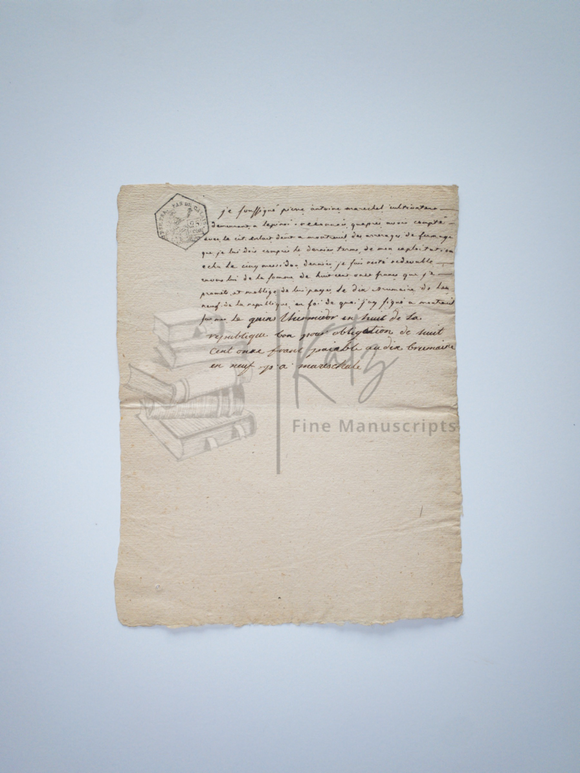 je soussigné pierre antoine marechal cultivateur
demeurant a lepinoi reconnoit quaprès avoir compté
avec le cit. dubut a montreuil des arrerages de fermage
que je lui dois compris le dernier terme de mon exploitation
echu le cinq mars dernier je suis resté redevable
envers lui de la somme de huit cent onze francs que je
promets et moblige de lui payer le dix brumaire de lan
neuf de la republique, en foi de quoi j'ay signé a montreuil
le quinze thermidor en huit de la
republique bon pour obligation de huit
cent onze franc paiable au dix brumaire
en neuf p a marechal
Katz
Fine Manuscripts